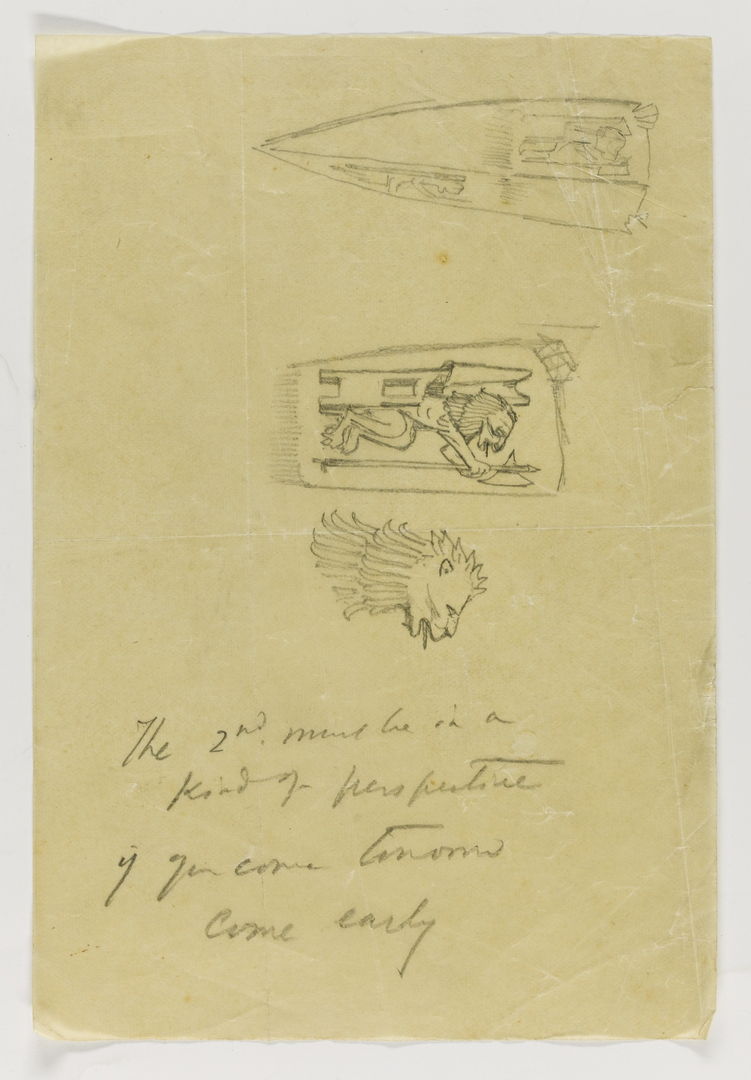 The 2nd. must be in a
kind of perspective
if you come tomorrow
come early